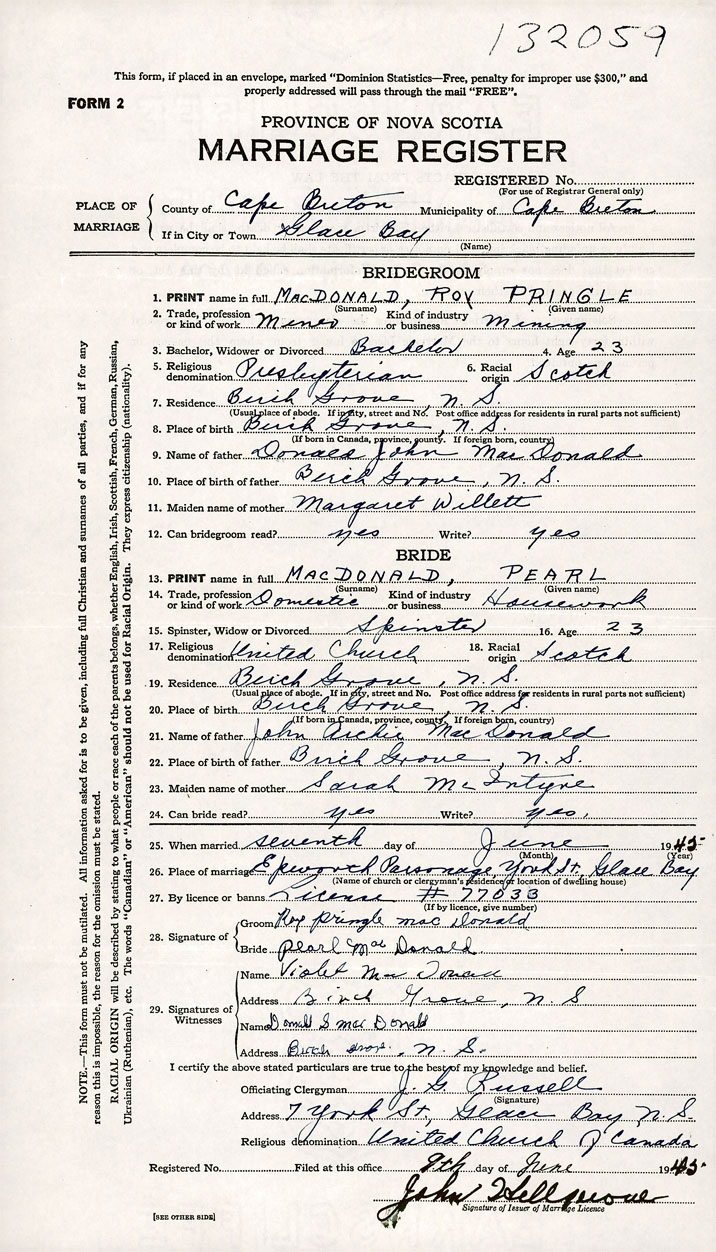 132059
This form, if placed in an envelope, marked "Dominion Statistics—Free, penalty for improper use $300," and
properly addressed will pass through the mail "FREE".
FORM 2
PROVINCE OF NOVA SCOTIA
MARRIAGE REGISTER
REGISTERED No.
(For use of Registrar General only)
PLACE OF MARRIAGE
County of Cape Breton Municipality of Cape Breton
If in City or Town Glace Bay
(Name)
BRIDEGROOM
1. PRINT name in full MACDONALD, ROY PRINGLE
(Surname) (Given name)
2. Trade, profession or kind of work Miner Kind of industry or business Mining
3. Bachelor, Widower or Divorced Bachelor 4. Age 23
5. Religious denomination Presbyterian 6. Racial origin Scotch
7. Residence Birch Grove, N.S.
(Usual place of abode. If in city, street and No. Post office address for residents in rural parts not sufficient)
8. Place of birth Birch Grove, N.S.
(If born in Canada, province, county. If foreign born, country)
9. Name of father Donald John MacDonald
10. Place of birth of father Birch Grove, N.S.
11. Maiden name of mother Margaret Willett
12. Can bridegroom read? yes Write? yes
BRIDE
13. PRINT name in full MACDONALD, PEARL
(Surname) (Given name)
14. Trade, profession or kind of work Domestic Kind of industry or business Housework
15. Spinster, Widow or Divorced Spinster 16. Age 23
17. Religious denomination United Church 18. Racial origin Scotch
19. Residence Birch Grove, N.S.
(Usual place of abode. If in city, street and No. Post office address for residents in rural parts not sufficient)
20. Place of birth Birch Grove, N.S.
(If born in Canada, province, county. If foreign born, country)
21. Name of father John Archie MacDonald
22. Place of birth of father Birch Grove, N.S.
23. Maiden name of mother Sarah McIntyre
24. Can bride read? yes Write? yes,
25. When married seventh day of June 1945
(Month) (Year)
26. Place of marriage Epworth Parsonage, York St, Glace Bay
(Name of church or clergyman's residence or location of dwelling house)
27. By licence or banns License # 77033
(If by licence, give number)
28. Signature of
Groom Roy Pringle Mac Donald
Bride Pearl Mac Donald
29. Signatures of Witnesses
Name Violet
Address Birch Grove, N.S
Name Donald S Mac Donald
Address Birch Grove, N.S.
I certify the above stated particulars are true to the best of my knowledge and belief.
Officiating Clergyman J. G. Russell
(Signature)
Address 7 York St, Glace Bay N.S
Religious denomination United Church of Canada
Registered No. Filed at this office 9th day of June 1945
John
Signature of Issuer of Marriage Licence
[SEE OTHER SIDE]
NOTE.—This form must not be mutilated. All information asked for is to be given, including full Christian and surnames of all parties, and if for any
reason this is impossible, the reason for the omission must be stated.
RACIAL ORIGIN will be described by stating to what people or race each of the parents belongs, whether English, Irish, Scottish, French, German, Russian,
Ukrainian (Ruthenian), etc. The words "Canadian" or "American" should not be used for Racial Origin. They express citizenship (nationality).